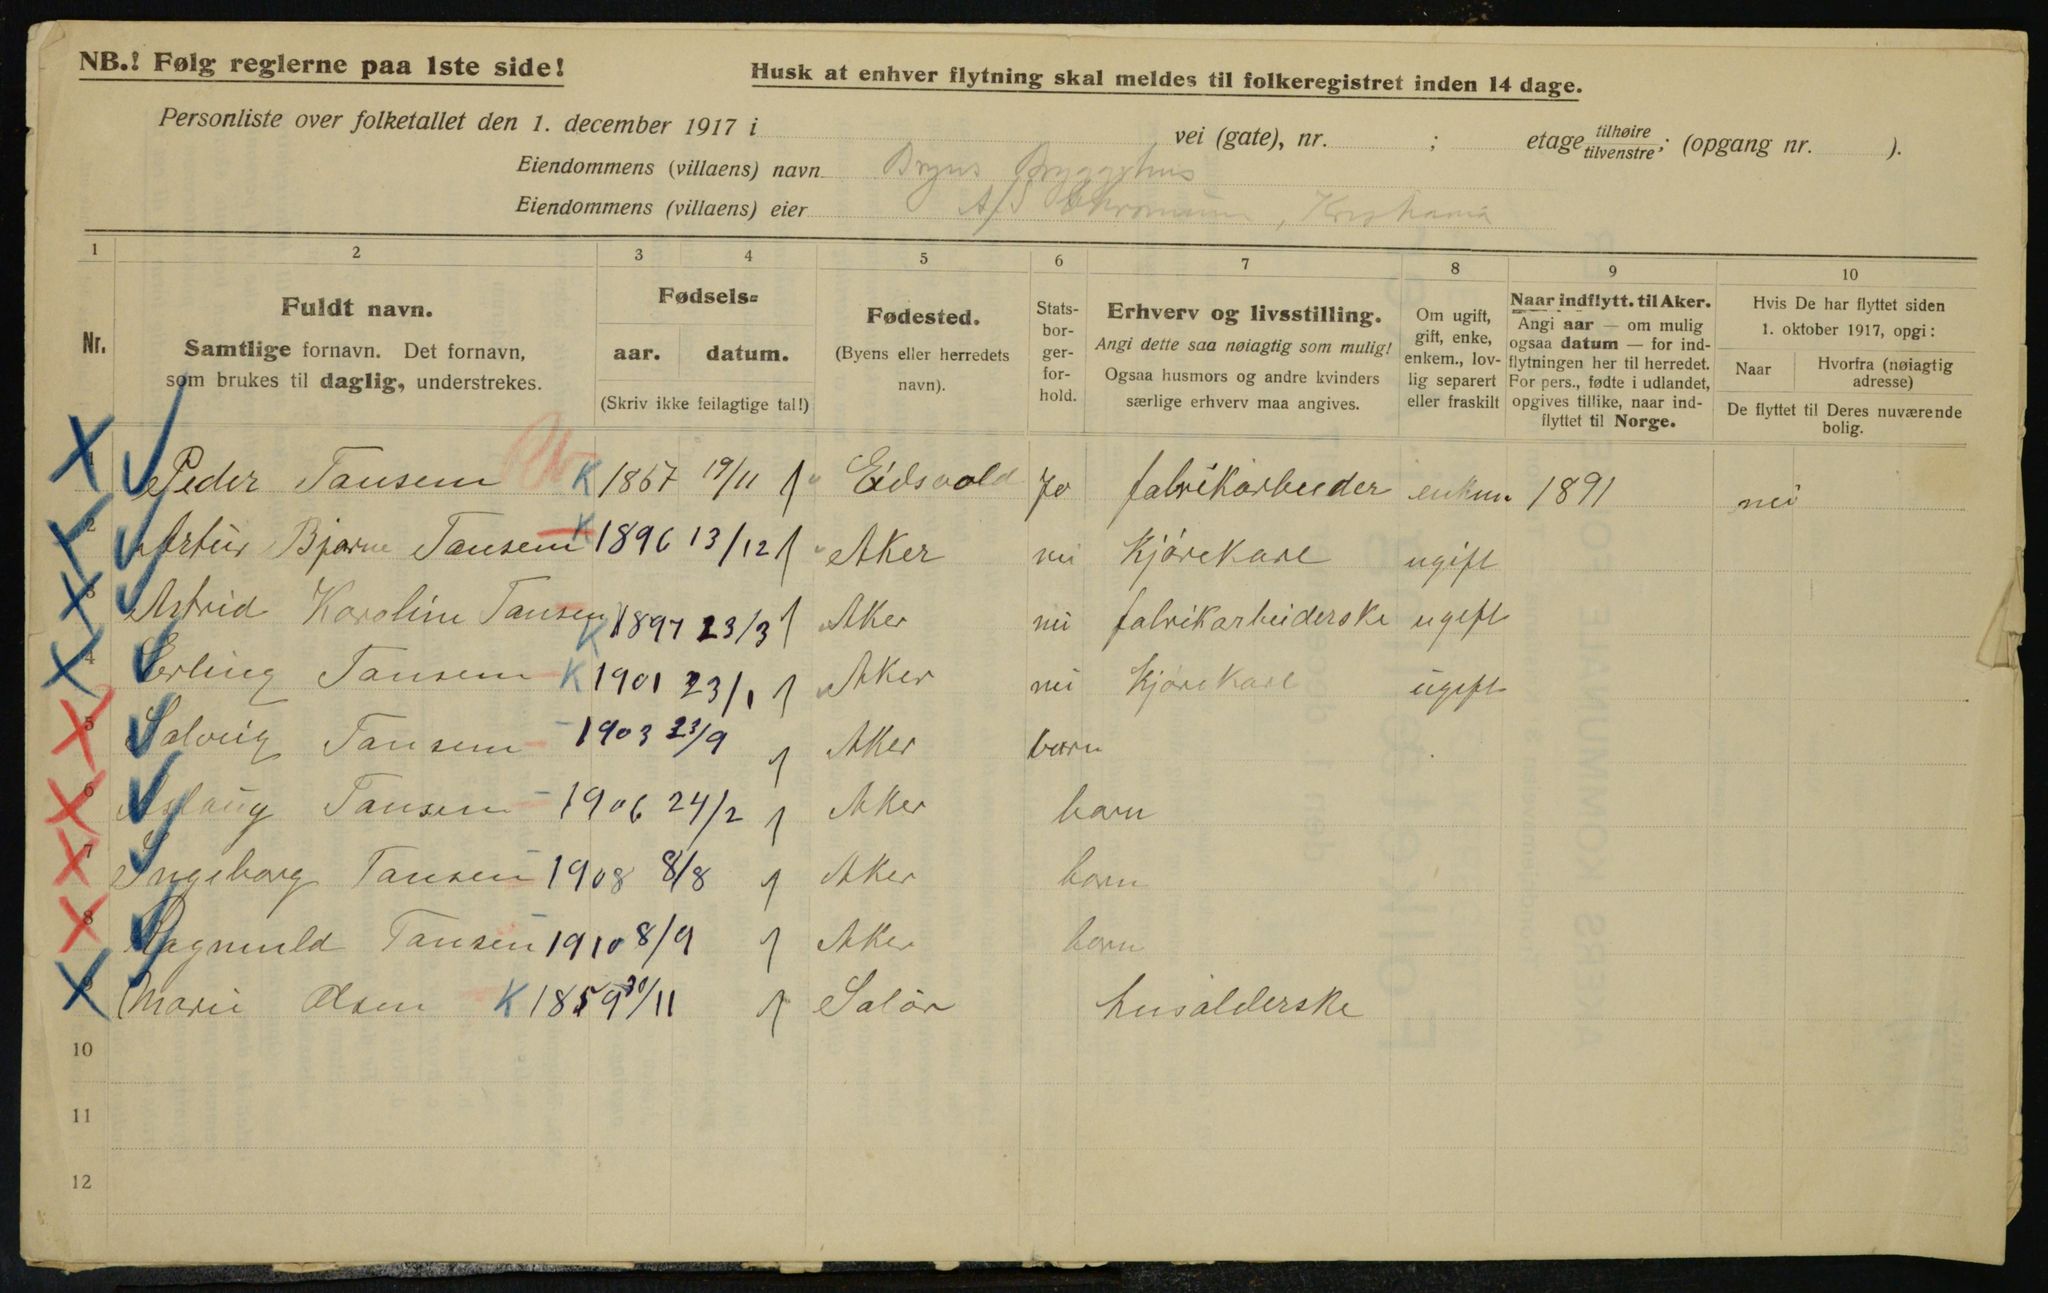 NB.! Følg reglerne paa 1ste side!
Husk at enhver flytning skal meldes til folkeregistret inden 14 dage.
Personliste over folketallet den 1. december 1917 i vei (gate), nr. ; etage tilhøire tilvenstre; (opgang nr. ).
Eiendommens (villaens) navn Bryns Bryggehus
Eiendommens (villaens) eier A/S Kristiania
1 2 3 4 5 6 7 8 9 10
Nr.
Fuldt navn.
Samtlige fornavn. Det fornavn,
som brukes til daglig, understrekes.
Fødsels=
aar. datum.
(Skriv ikke feilagtige tal!)
Fødested.
(Byens eller herredets
navn).
Stats-
bor-
ger-
for-
hold.
Erhverv og livsstilling.
Angi dette saa nøiagtig som mulig!
Ogsaa husmors og andre kvinders
særlige erhverv maa angives.
Om ugift,
gift, enke,
enkem., lov-
lig separert
eller fraskilt
Naar indflytt. til Aker.
Angi aar — om mulig
ogsaa datum — for ind-
flytningen her til herredet.
For pers., fødte i udlandet,
opgives tillike, naar ind-
flyttet til Norge.
Hvis De har flyttet siden
1. oktober 1917, opgi:
Naar
Hvorfra (nøiagtig
adresse)
De flyttet til Deres nuværende
bolig.
1 Peder Tansem K 1867 19/11 Eidsvold Jo fabrikarbeider enkm 1891 nei
2 Artur Bjarne Tansem K 1896 13/12 Aker nei Kjørekarl ugift
3 Astrid Karoline Tansem K 1897 23/3 Aker nei fabrikarbeiderske ugift
4 Erling Tansem K 1901 23/1 Aker nei Kjørekarl ugift
5 Solveig Tansem 1903 23/9 Aker barn
6 Aslaug Tansem 1906 24/2 Aker barn
7 Ingeborg Tansem 1908 8/8 Aker barn
8 Ragnuld Tansem 1910 8/9 Aker barn
9 Marie Olsen K 1859 30/11 Solør husalderske
10
11
12